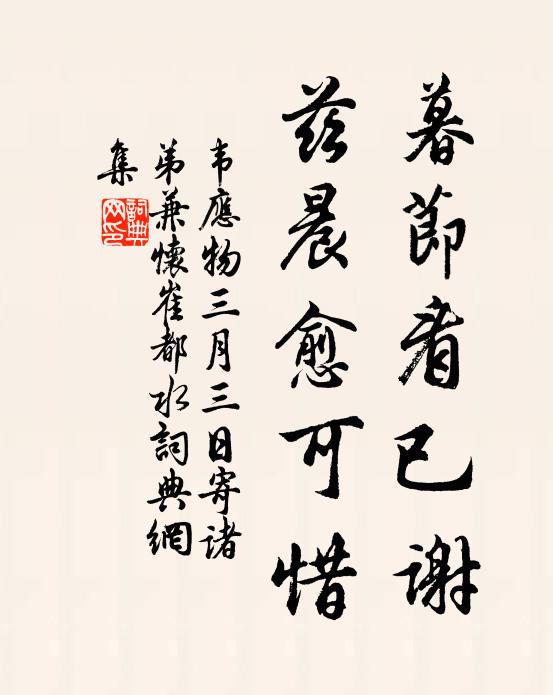 暮節看已謝
茲晨愈可惜
韋應物三月三日寄諸
弟兼懷崔都水詞典網
集
詞典
网印